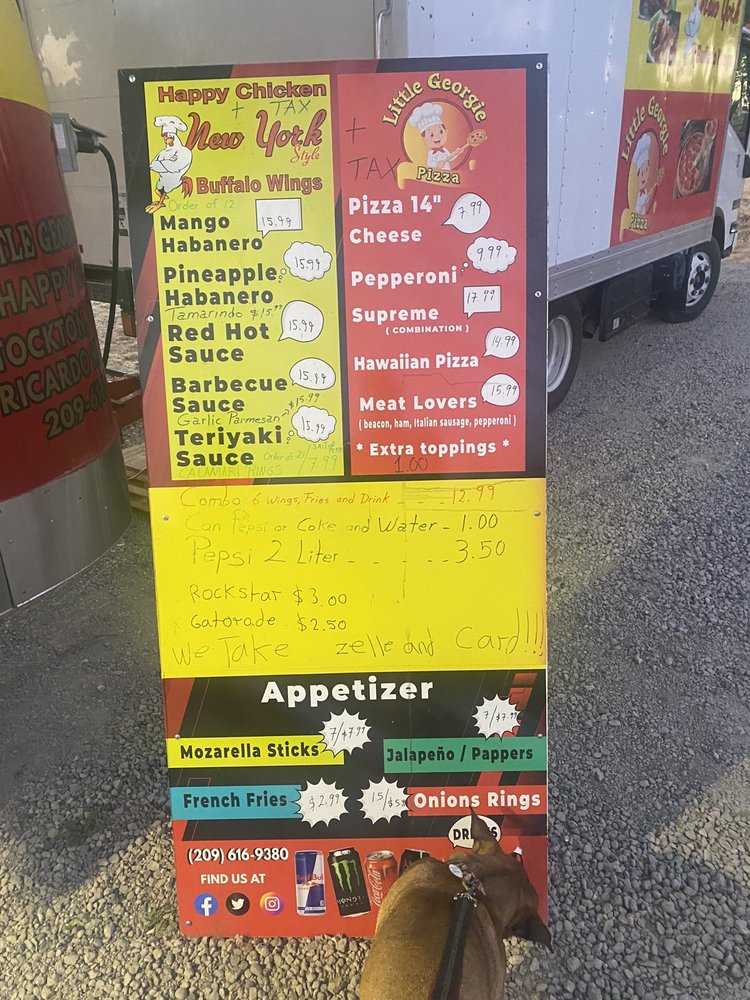 Happy Chicken
+ TAX
New York
Style
Buffalo Wings
Order of 12
Mango
Habanero
15.99
Pineapple
Habanero
15.99
Tamarindo $15.99
Red Hot
Sauce
15.99
Barbecue
Sauce
15.99
Garlic Parmesan → $15.99
Teriyaki
Sauce
15.99
Order of 21 / 7.99
CALAMARI RINGS
Little Georgie
Pizza
+
TAX
Pizza 14"
Cheese
7.99
Pepperoni
9.99
Supreme
( COMBINATION )
17.99
Hawaiian Pizza
14.99
Meat Lovers
15.99
( beacon, ham, Italian sausage, pepperoni )
* Extra toppings *
1.00
Combo 6 Wings, Fries and Drink - - - - 12.99
Can Pepsi or Coke and Water - 1.00
Pepsi 2 Liter - - - - - 3.50
Rockstar $3.00
Gatorade $2.50
We Take zelle and Card!!!
Appetizer
Mozarella Sticks
7/$7.99
Jalapeño / Pappers
7/$7.99
French Fries
$2.99
15/$5.
Onions Rings
(209) 616-9380
FIND US AT
Red Bull
MONSTER
Coca-Cola
New York
Little Georgie
Pizza
HAPPY
STOCKTON
RICARDO
209-6